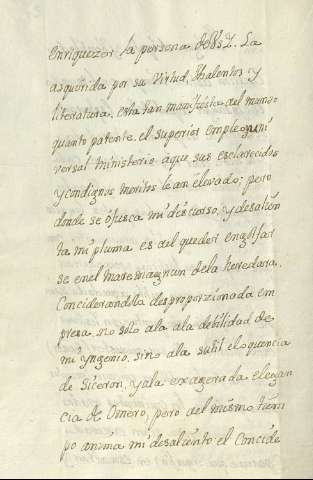 enriquezer la persona de VSY. La
adquirida por su Virtud, thalentos y
literatura, esta tan manifiesta al mundo
quanto patente el superior empleo, uni
versal ministerio aque sus esclarecidos
y condignos meritos le an elevado; pero
donde se ofusca mi discurso, y desalien
ta mi pluma es al querer englofar
se enel maremagnun dela heredara.
Conciderandola desproporzionada em
presa, no solo ala ala debilidad de
mi yngenio, sino ala sutil eloquencia
de Siceron, y ala exagerada elegan
cia de Omero, pero al mismo tiem
po anima mi desaliento el Concide